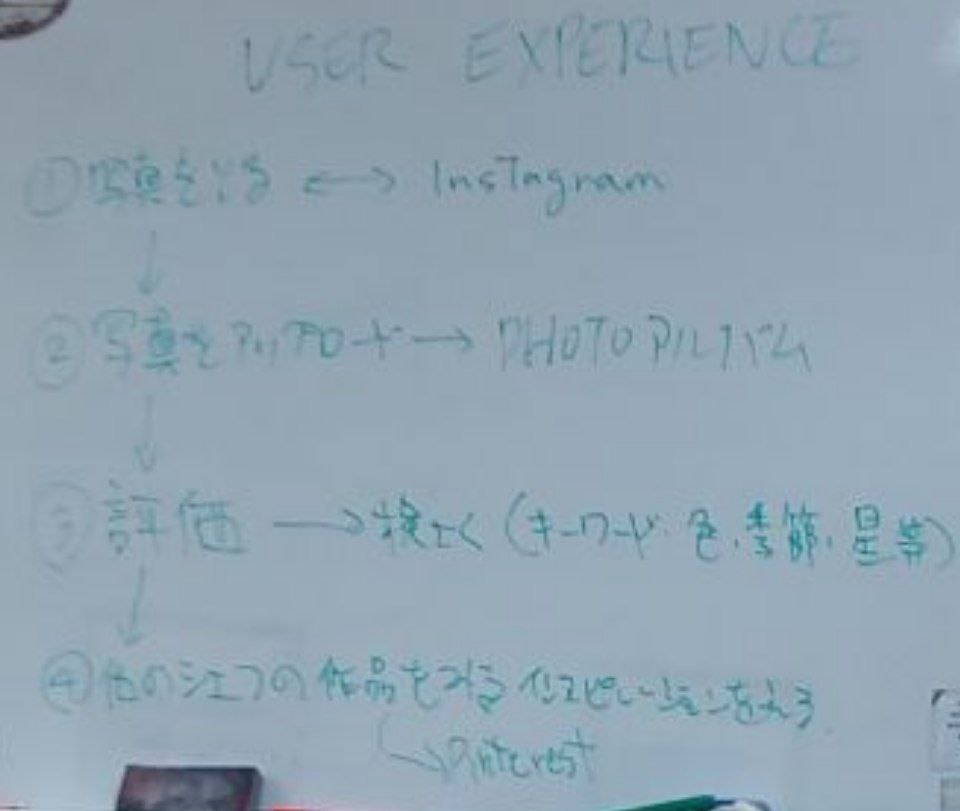 USER EXPERIENCE
① 写真をとる ←→ Instagram
② 写真をアップロード → PHOTOアルバム
③ 評価 → 検さく (キーワード. 色. 季節. 星等)
④ 他のシェフの作品をみる インスピレーションをえる
→ Pinterest